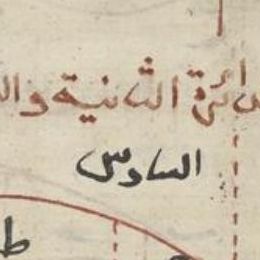 دائرة الثانية وال
السادس
ط